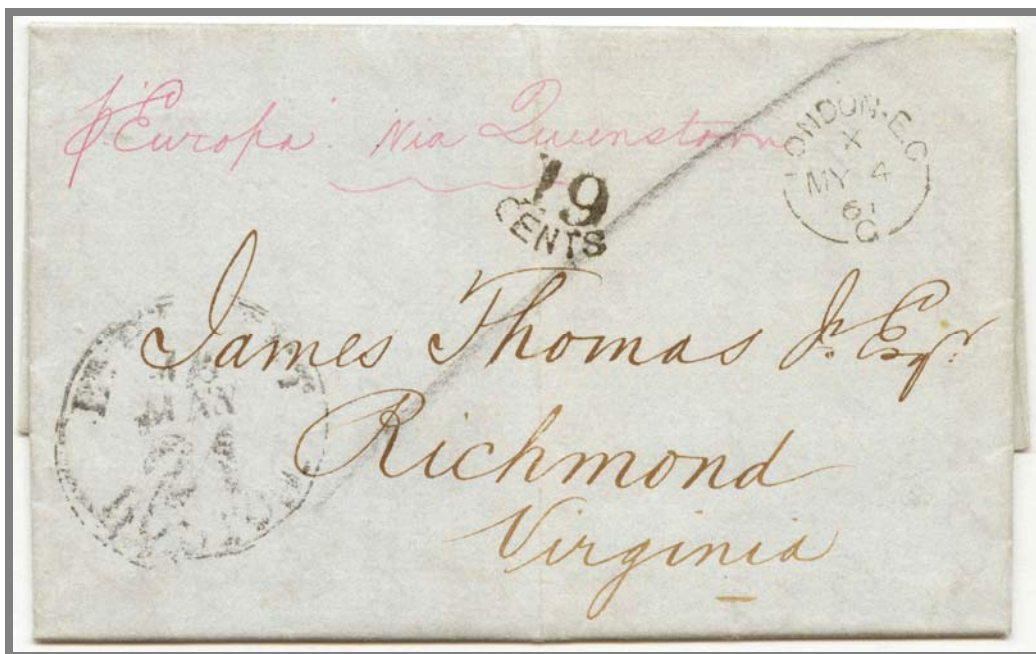 pr Europa Via Queenstown
LONDON·E.C
X
MY 4
61
C
19
CENTS
James Thomas Jr. Esqr.
MAY
21
Richmond
Virginia